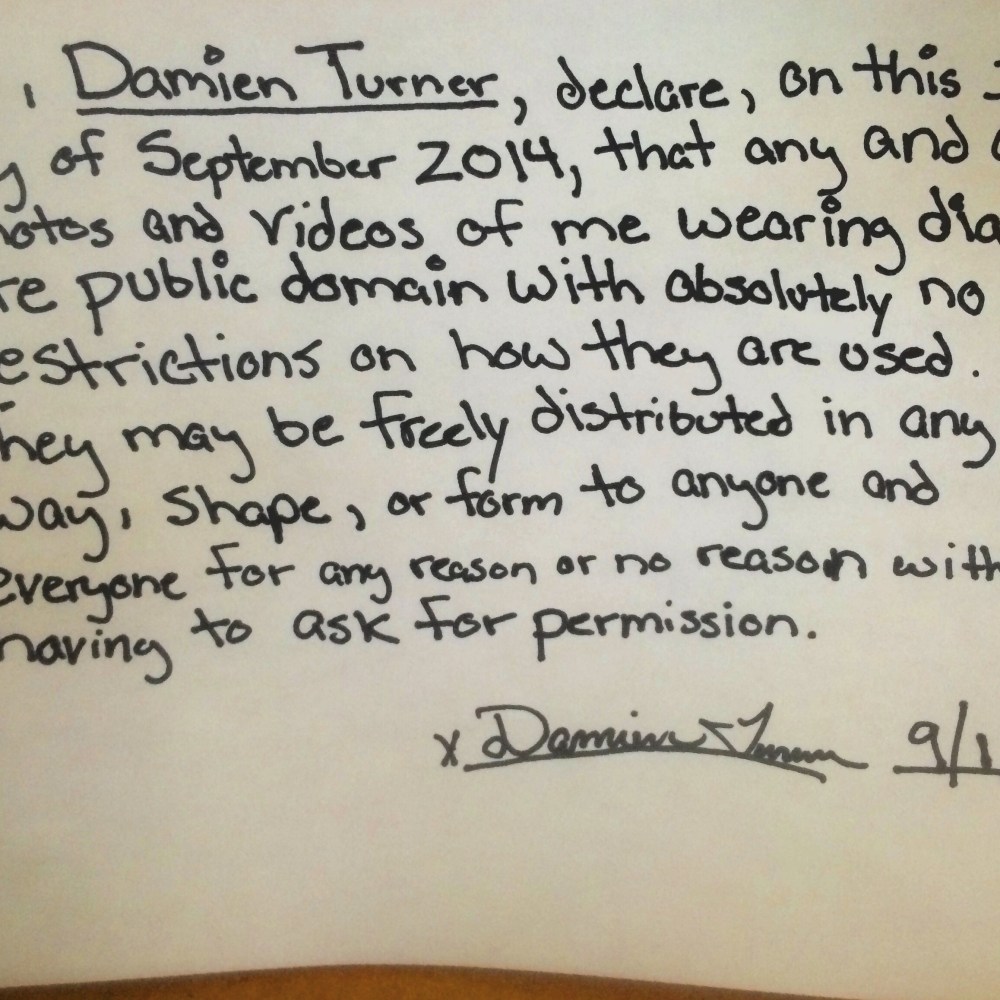 , Damien Turner, declare, on this
y of September 2014, that any and
otos and videos of me wearing dia
re public domain with absolutely no
estrictions on how they are used.
hey may be freely distributed in any
way, shape, or form to anyone and
everyone for any reason or no reason with
having to ask for permission.
x Damien Turner 9/1